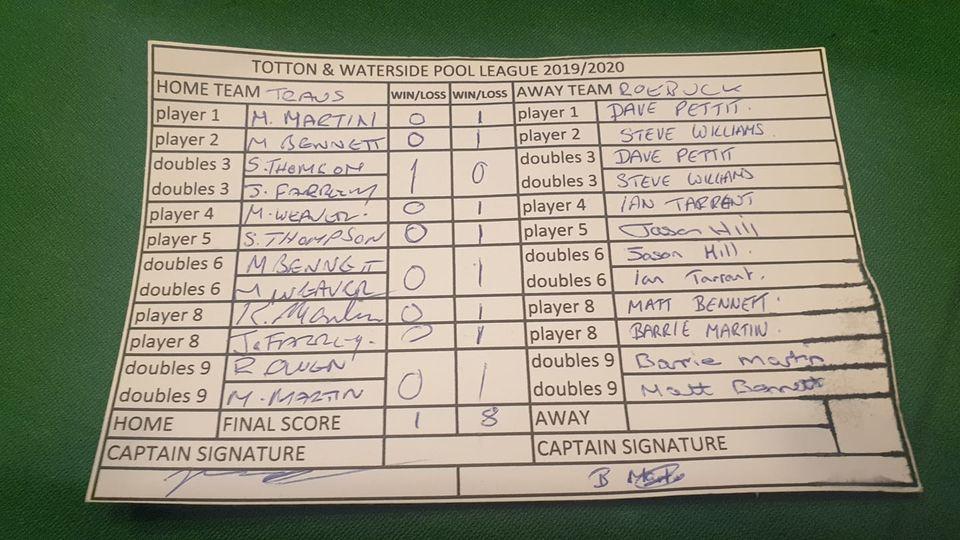 TOTTON & WATERSIDE POOL LEAGUE 2019/2020
HOME TEAM TRAVS WIN/LOSS WIN/LOSS AWAY TEAM ROEBUCK
player 1 M. MARTIN 0 1 player 1 DAVE PETTIT.
player 2 M BENNETT 0 1 player 2 STEVE WILLIAMS.
doubles 3 S.THOMSON 1 0 doubles 3 DAVE PETTIT
doubles 3 J. FARRLEY doubles 3 STEVE WILLIAMS
player 4 M.WEAVER. 0 1 player 4 IAN TARRENT
player 5 S.THOMPSON 0 1 player 5 Jason Hill
doubles 6 M BENNETT 0 1 doubles 6 Jason Hill.
doubles 6 M WEAVER doubles 6 Ian Tarrant.
player 8 K. 0 1 player 8 MATT BENNETT.
player 8 J. FARRLEY. 0 1 player 8 BARRIE MARTIN
doubles 9 R OWEN 0 1 doubles 9 Barrie Martin
doubles 9 M. MARTIN doubles 9 Matt Bennett
HOME FINAL SCORE 1 8 AWAY
CAPTAIN SIGNATURE CAPTAIN SIGNATURE
B